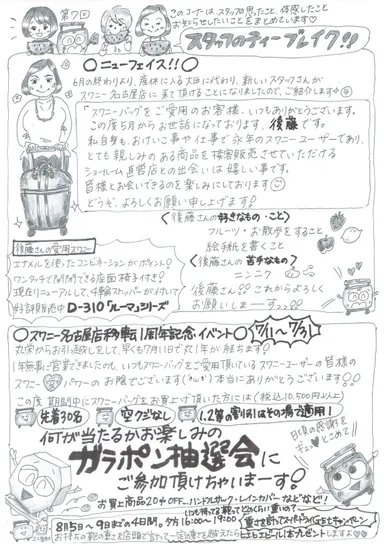 第7回
このコーナーは、スタッフの思った事、体感したこと
お知らせしたいことをまとめています♡
スタッフのティーブレイク!!
○ニューフェイス!!○
6月の終わりより、産休に入る太田に代わり、新しいスタッフさんが
スワニー名古屋店に来て頂けることになりましたので、ご紹介します
「スワニーバッグをご愛用のお客様、いつもありがとうございます。
この度5月からお世話になっております、後藤です。
私自身も、おけいこ事や仕事で永年のスワニーユーザーであり、
とても親しみのある商品を接客販売させていただける
ショールーム直営店との出会いは嬉しい事です。
皆様とお会いできるのを楽しみにしております
どうぞ、よろしくお願い申し上げます!
〈後藤さんの好きなもの・こと〉
フルーツ・お散歩をすること
絵手紙を書くこと
〈後藤さんの苦手なもの〉
ニンニク
後藤さん!!これからよろしく
お願いしまーす♪♪!!
後藤さんの愛用スワニー
エナメルを使ったコンビネーションがポイント!
ワンタッチで開閉できる座面椅子付き!
現在リニューアルして、4輪ストッパーが付いて
好評販売中 D-310「ルーマ」シリーズ
○スワニー名古屋店移転1周年記念イベント○
7/1〜7/31
丸栄からお引越しをして、早くも7月1日で丸1年が経ちます!
1年無事に営業できましたのも、いつもスワニーバッグをご愛用頂いているスワニーユーザーの皆様の
スワニー♡パワーのお陰でございます(^ω^)本当にありがとうございます!!
この度 期間中にスワニーバッグをお買上げ頂いた方には(税込10,500円以上)
先着30名
空クジなし
1、2等の割引はその場で適用!
何が当たるかお楽しみの
ガラポン抽選会に
ご参加頂けちゃいまーす!
日頃の感謝を
ギュッとこめて
お買上商品20%OFF、ハンドルサーク・レインカバーなどなど!!
いつも持ってる鞄ってどれくらい重いの?
8月5日〜9日までの4日間。夕方16:00〜19:00
重さを計ってスーパードライGETキャンペーン